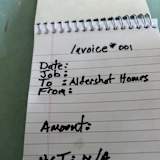 Invoice # 001
Date:
Job:
To: Aldershot Homes
From:
Amount:
HST: N/A